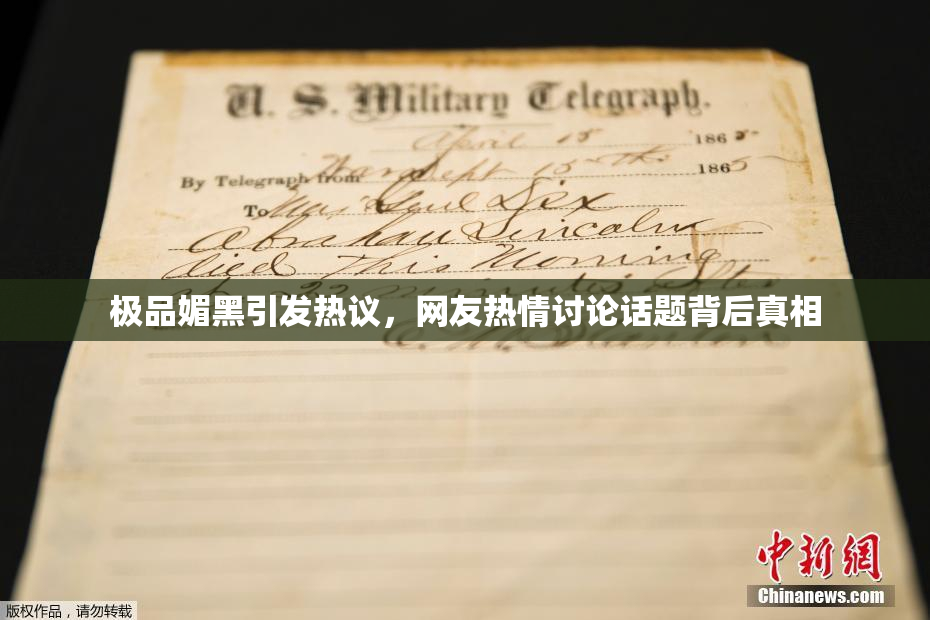 U. S. Military Telegraph.
April 15 1865
By Telegraph from War Dept 15th 1865
To Maj Genl Dix
Abraham Lincoln
died This Morning
22 minutes after
极品媚黑引发热议，网友热情讨论话题背后真相
E. M. Stanton
中新網
Chinanews.com
版权作品，请勿转载